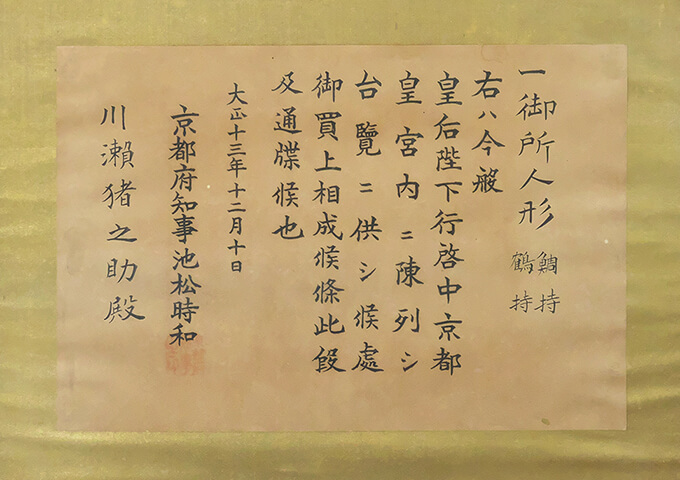 一御所人形 鯛持
鶴持
右ハ今般
皇后陛下行啓中京都
皇宮内ニ陳列シ
台覽ニ供シ候處
御買上相成候條此段
及通牒候也
大正十三年十二月十日
京都府知事池松時和
川瀨猪之助殿